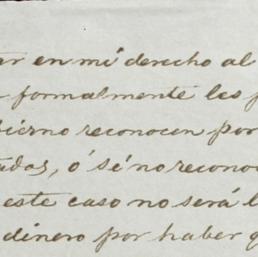 ar en mi derecho al
formalmente les p
bierno reconocen por
tadas, ó sé no reconoc
este caso no será l
dinero por haber q